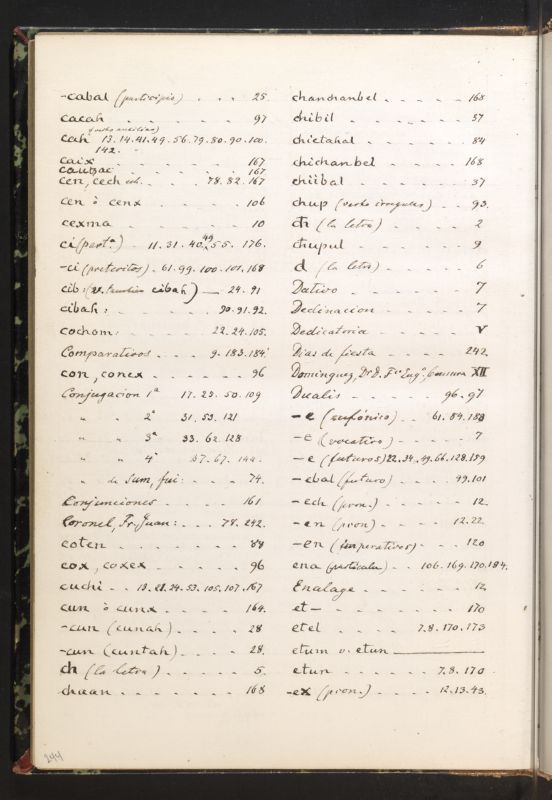 -cabal (participio) . . . 25.
cacah . . . . . 97
(verbo auxiliar)
cah 13.14.41.49.56.79.80.90.100.
142.
caix . . . . . 167
cautzac . . . . . 167
cen, cech . . . 78.82.167
cen ò cenx . . . . 106
cexma . . . . . 10
ci (part.ª) . 11.31.40.49.55.176.
-ci (preteritos) . 61.99.100.101.168
cib: (v. tambien cibah) — 24.91
cibah: . . . . 90.91.92.
cochom: . . . . 22.24.105.
Comparativos . . . . 9.183.184.
con, conex . . . . . 96
Conjugacion 1ª 17.23.50.109
" " 2ª 31.53.121
" " 3ª 33.62.128
" " 4ª 37.67.144.
" de Sum, fui: . . . 74.
Conjunciones . . . . 161
Coronel, Fr. Juan: . . . 78.242.
coten . . . . . . 88
cox, coxex . . . . . 96
cuchi . . 13.21.24.53.105.107.167
cun ò cunx . . . . 164.
-cun (cunah) . . . . 28
-cun (cuntah) . . . . 28.
ch (la letra) . . . . . 5.
chaan . . . . . . 168
chanchanbel . . . . . 168
chibil . . . . . . 37
chictahal . . . . . 84
chichanbel . . . . . 168
chiibal . . . . . . 37
chup (verbo irregular) . . 93.
cħ (la letra) . . . . 2
chupul . . . . . . 9
d (la letra) . . . . . 6
Dativo . . . . . . 7
Declinacion . . . . . 7
Dedicatoria . . . . . V
Dias de fiesta . . . . 242.
Dominguez, Dr. D. Fco. Eugº, Censura XII
Dualis . . . . . 96.97
-e (eufónico) . . 61.89.188
-e (vocativo) . . . . 7
-e (futuros) 22.34.49.66.128.159
-ebal (futuro) . . . 99.101
-ech (pron.) . . . . . 12.
-en (pron) . . . . 12.22.
-en (imperativos) . . . 120
ena (particula) . . 106.169.170.184.
Enalage . . . . . . 12.
et- . . . . . . 170
etel . . . . 7.8.170.173
etum v. etun
etun . . . . . 7.8.170
-ex (pron.) . . . . 12.13.43.
244